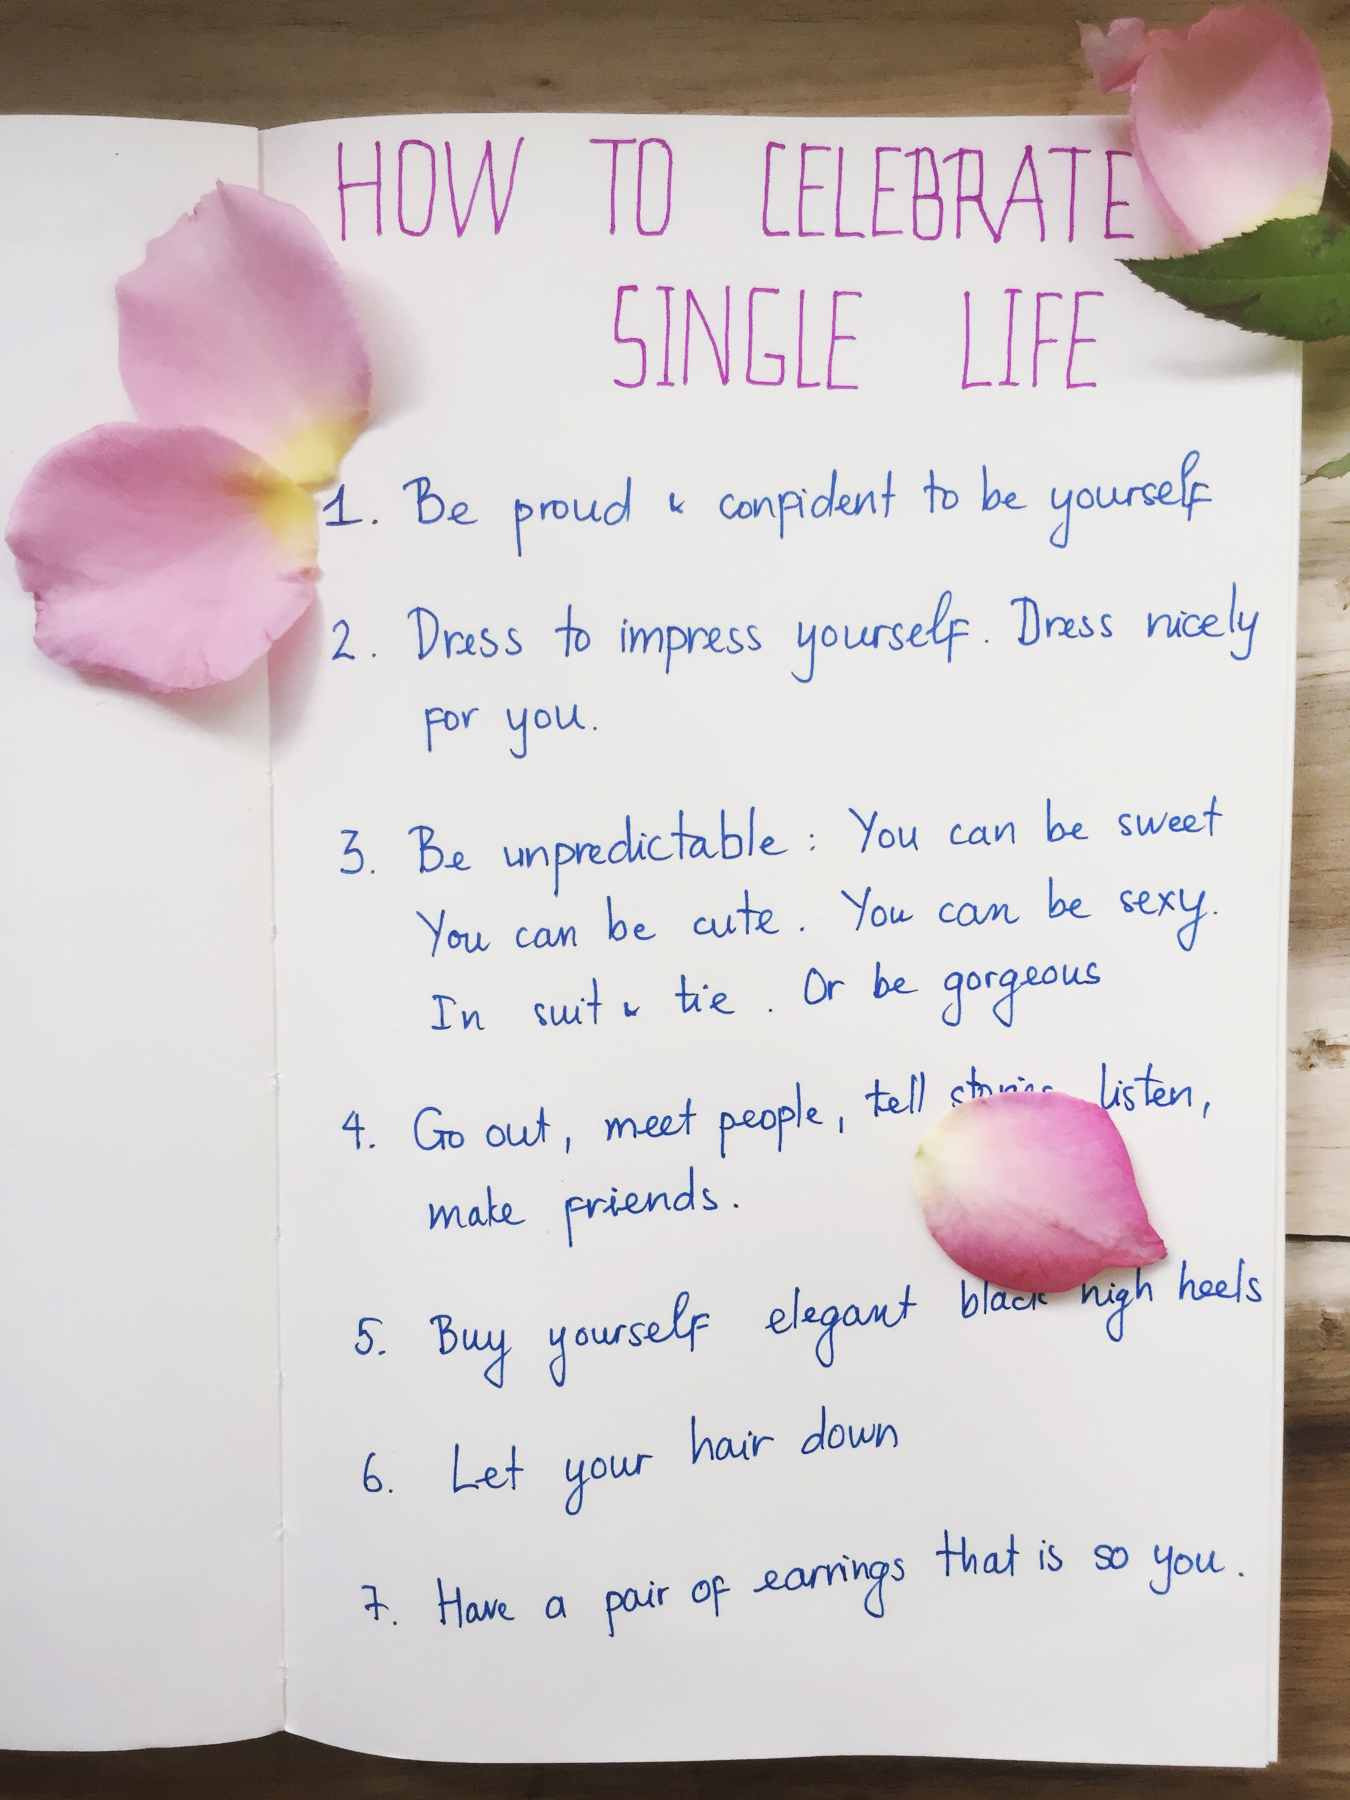 HOW TO CELEBRATE
SINGLE LIFE
1. Be proud & confident to be yourself
2. Dress to impress yourself. Dress nicely
for you.
3. Be unpredictable : You can be sweet
You can be cute. You can be sexy.
In suit & tie. Or be gorgeous
4. Go out, meet people, tell stories listen,
make friends.
5. Buy yourself elegant black high heels
6. Let your hair down
7. Have a pair of earrings that is so you.